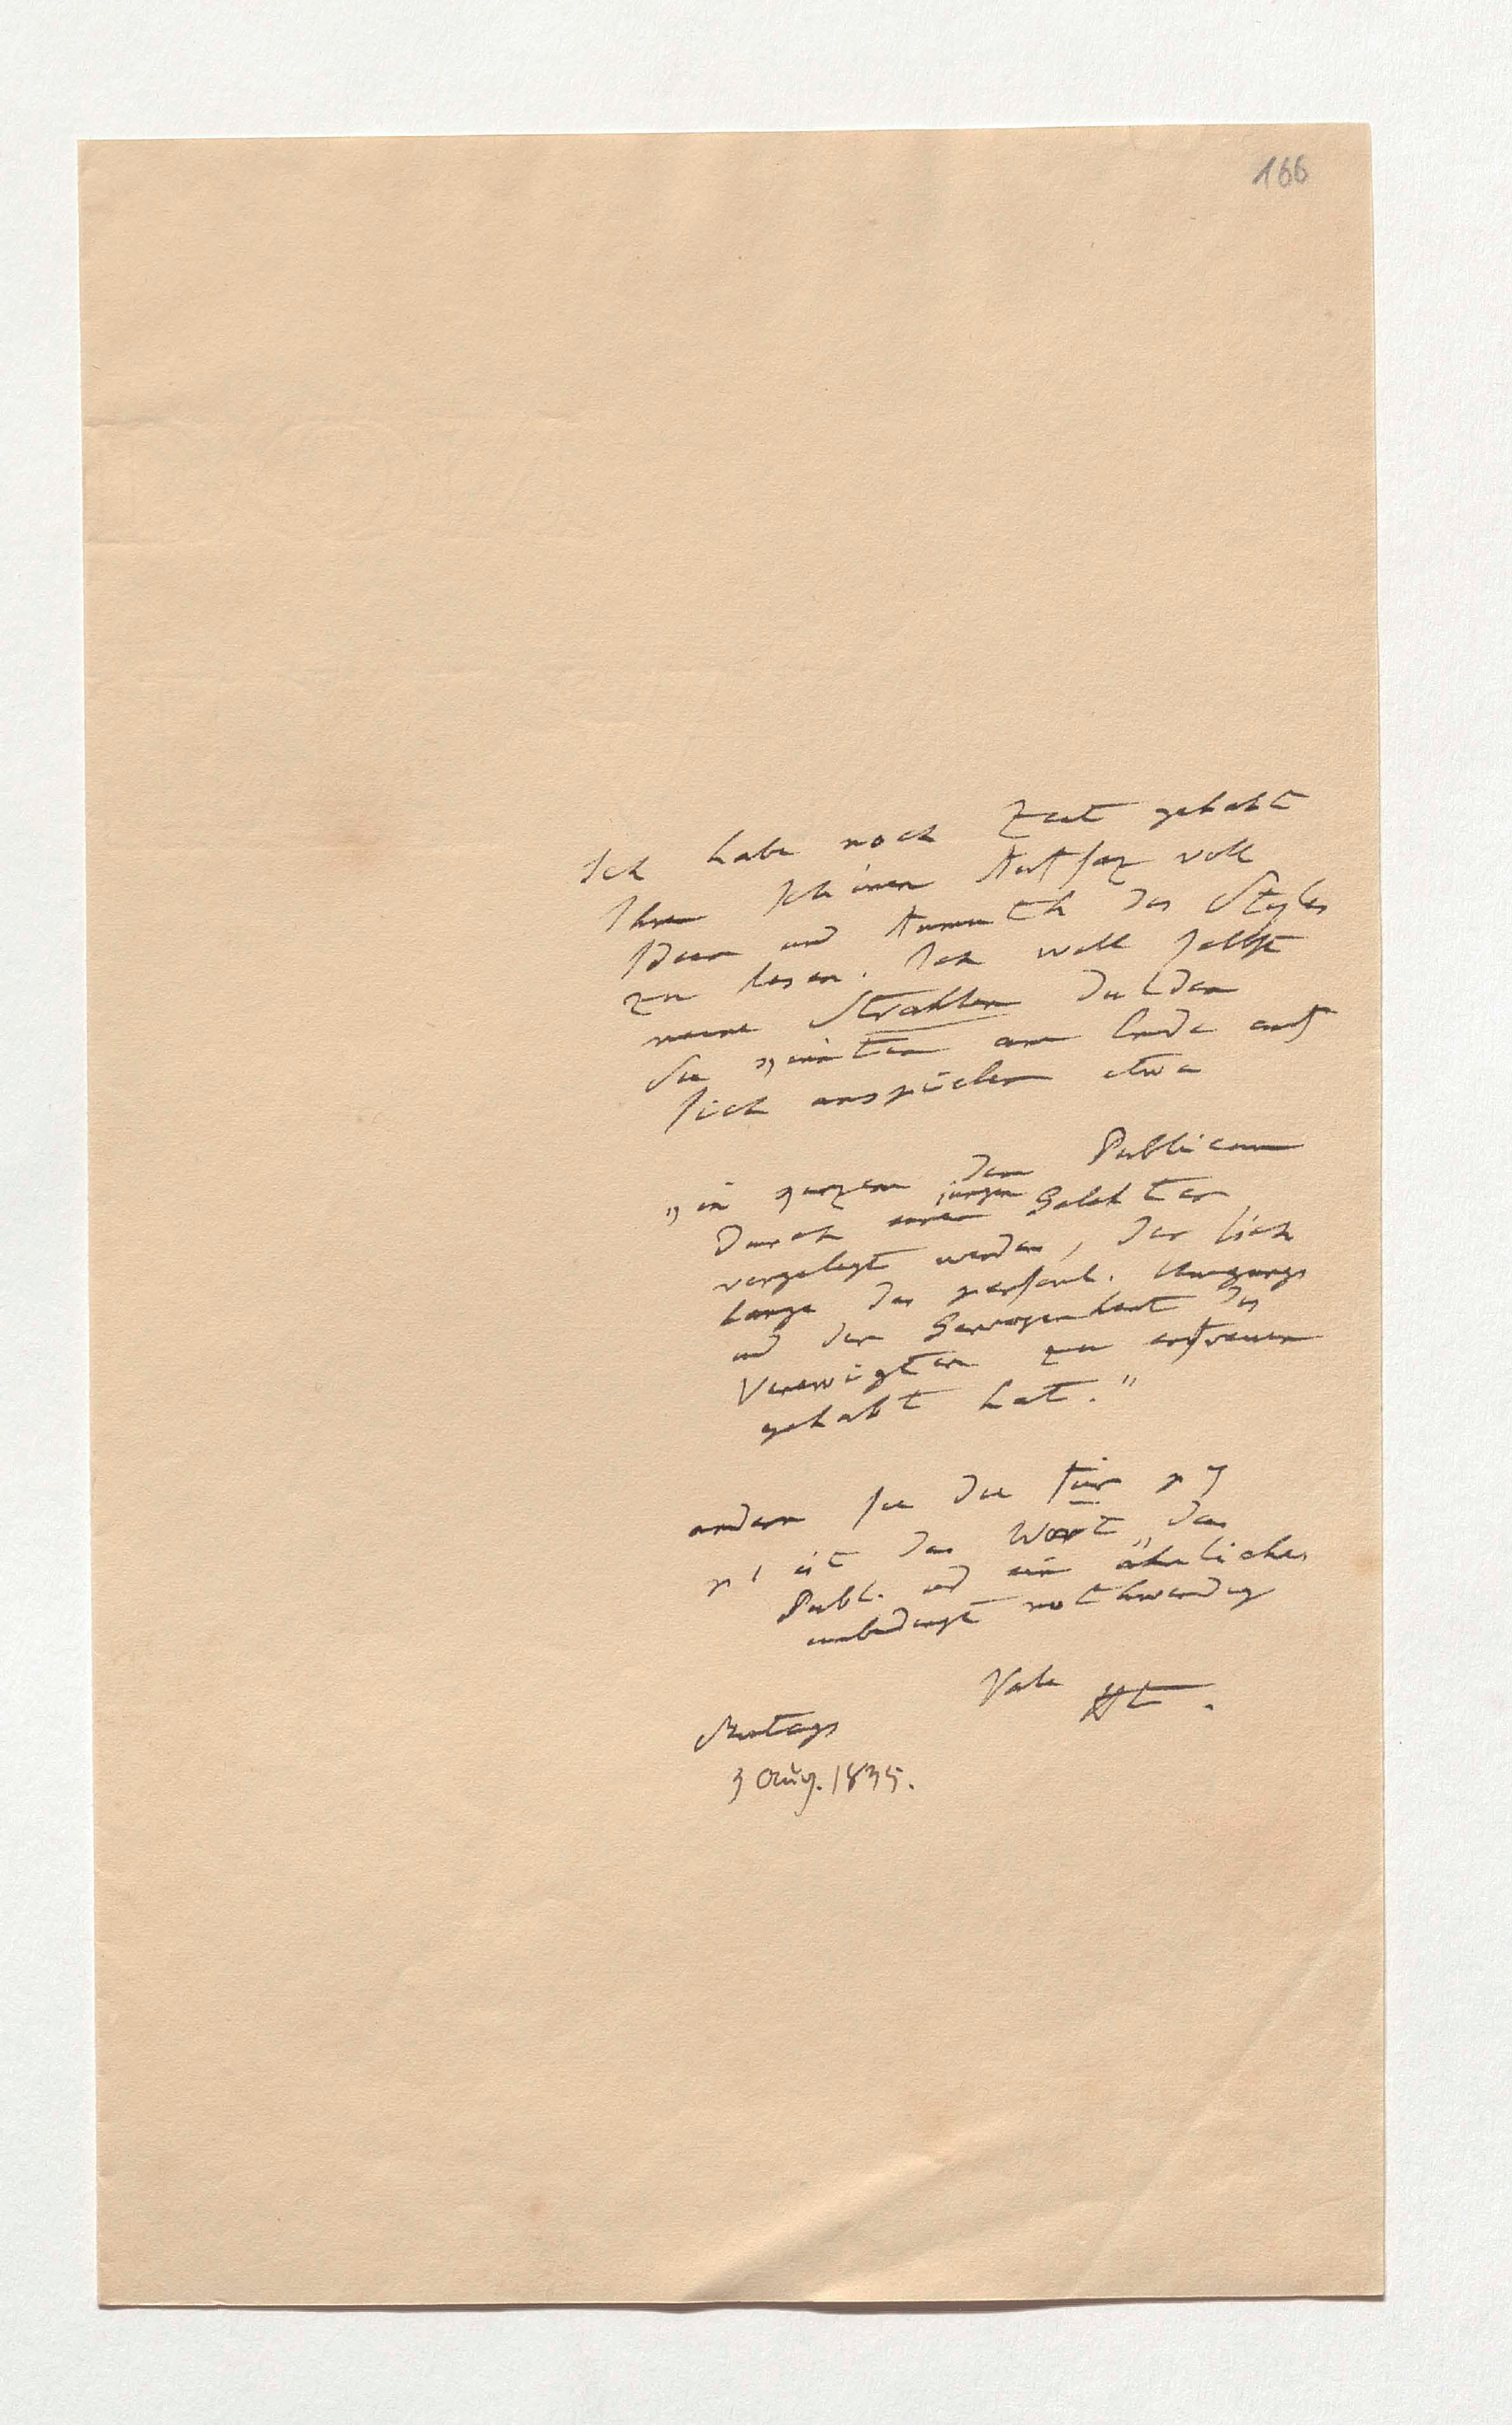 166
Ich habe noch Zeit gehabt
Ihren schönen Aufsaz voll
Ideen und Anmuth des Styles
zu lesen. Ich will selbst
meine Strahlen dulden
Sie müsten am Ende auf
sich anspielen etwa
„in kurzem dem Publicum
durch einen jungen Gelehrten
vorgelegt werden, der sich
lange des persönl. Umgangs
und der Gewogenheit des
Verewigten zu erfreuen
gehabt hat."
andern Sie die für p 7
p 1 ist das Wort „das
Publ. und ein ähnliches
unbedingt nothwendig
Vale HT.
Montags
3 Aug. 1835.